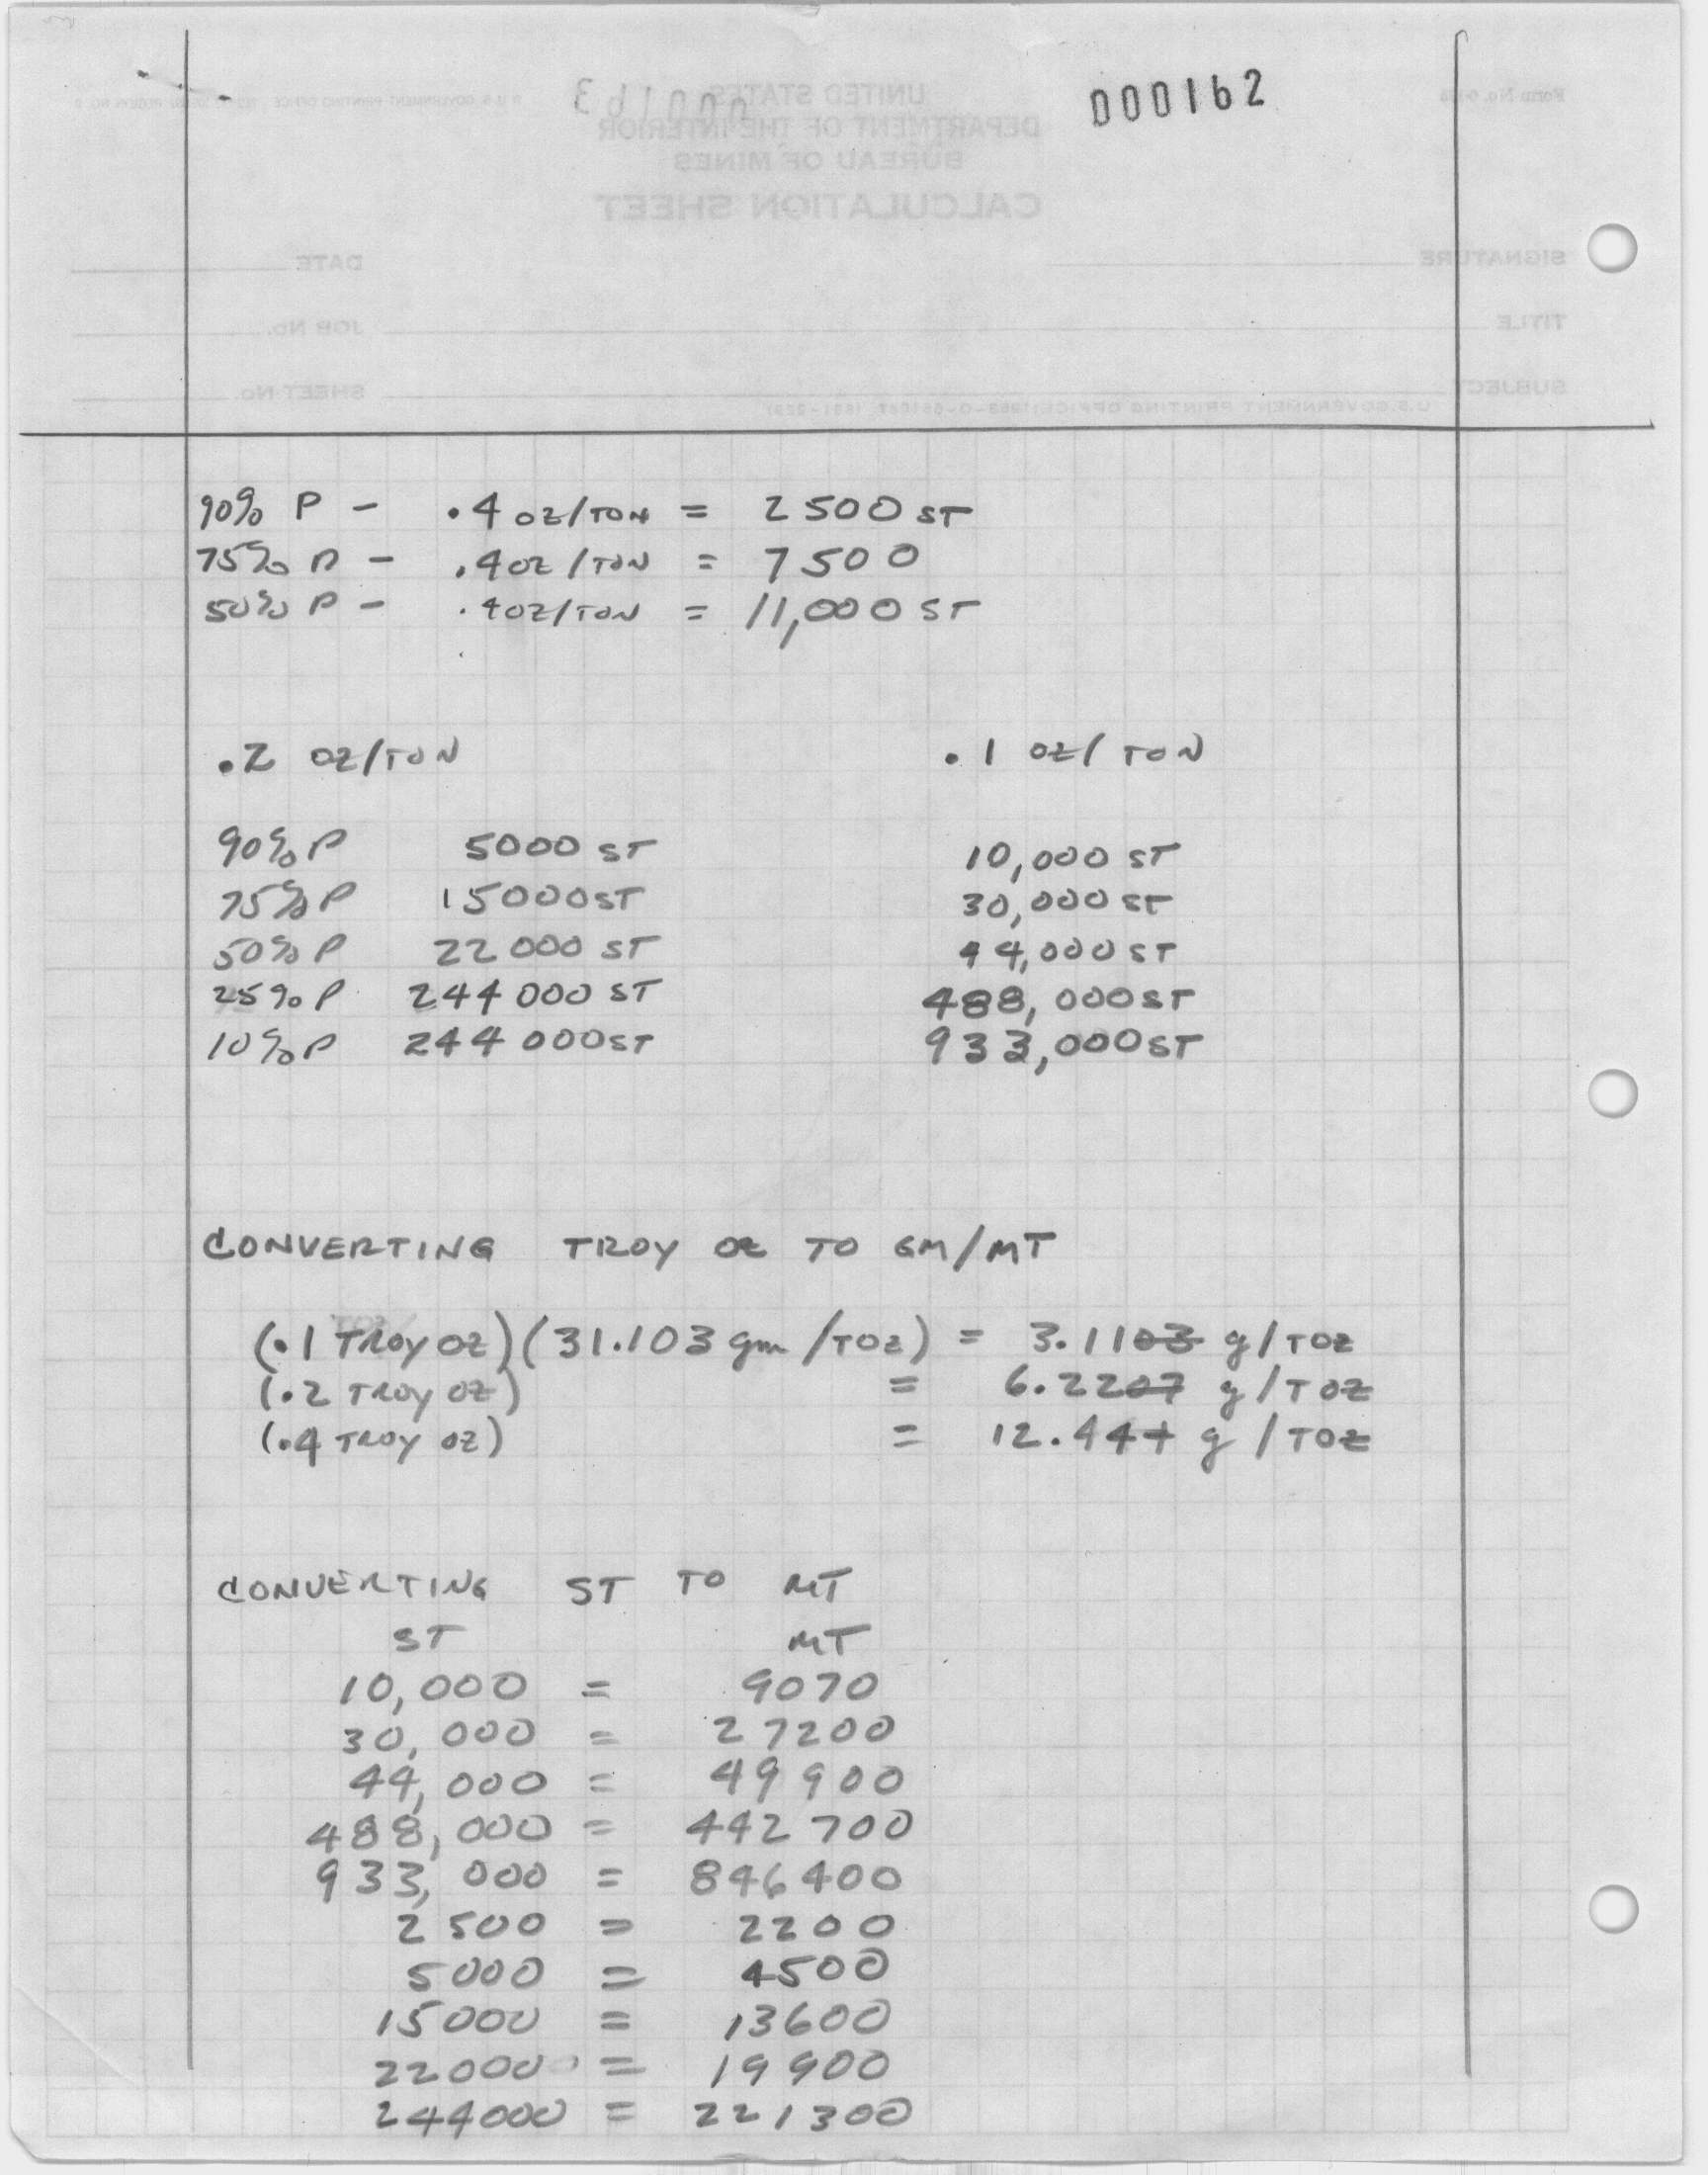 000162
90% P - .4 OZ/TON = 2500 ST
75% P - .4 OZ/TON = 7500
50% P - .4 OZ/TON = 11,000 ST
.2 OZ/TON .1 OZ/TON
90% P 5000 ST 10,000 ST
75% P 15000 ST 30,000 ST
50% P 22000 ST 44,000 ST
25% P 244000 ST 488,000 ST
10% P 244000 ST 933,000 ST
CONVERTING TROY OZ TO GM/MT
(.1 TROY OZ)(31.103 gm/TOZ) = 3.1103 g/TOZ
(.2 TROY OZ) = 6.2207 g/TOZ
(.4 TROY OZ) = 12.441 g/TOZ
CONVERTING ST TO MT
ST MT
10,000 = 9070
30,000 = 27200
44,000 = 49900
488,000 = 442700
933,000 = 846400
2500 = 2200
5000 = 4500
15000 = 13600
22000 = 19900
244000 = 221300
UNITED STATES
DEPARTMENT OF THE INTERIOR
BUREAU OF MINES
CALCULATION SHEET
SIGNATURE DATE
TITLE JOB No.
SUBJECT SHEET No.